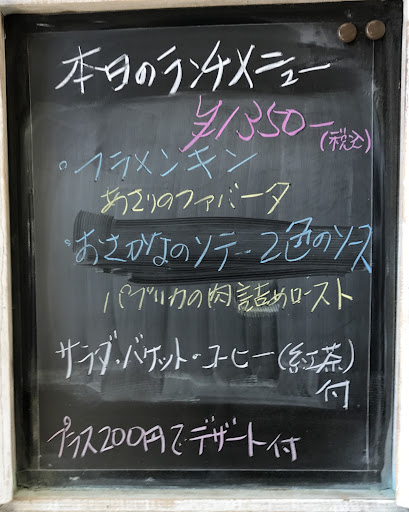 本日のランチメニュー
¥1350-(税込)
・フラメンキン
あさりのファバータ
・おさかなのソテー 2色のソース
パプリカの肉詰めロースト
サラダ・バケット・コーヒー(紅茶)
付
プラス200円でデザート付